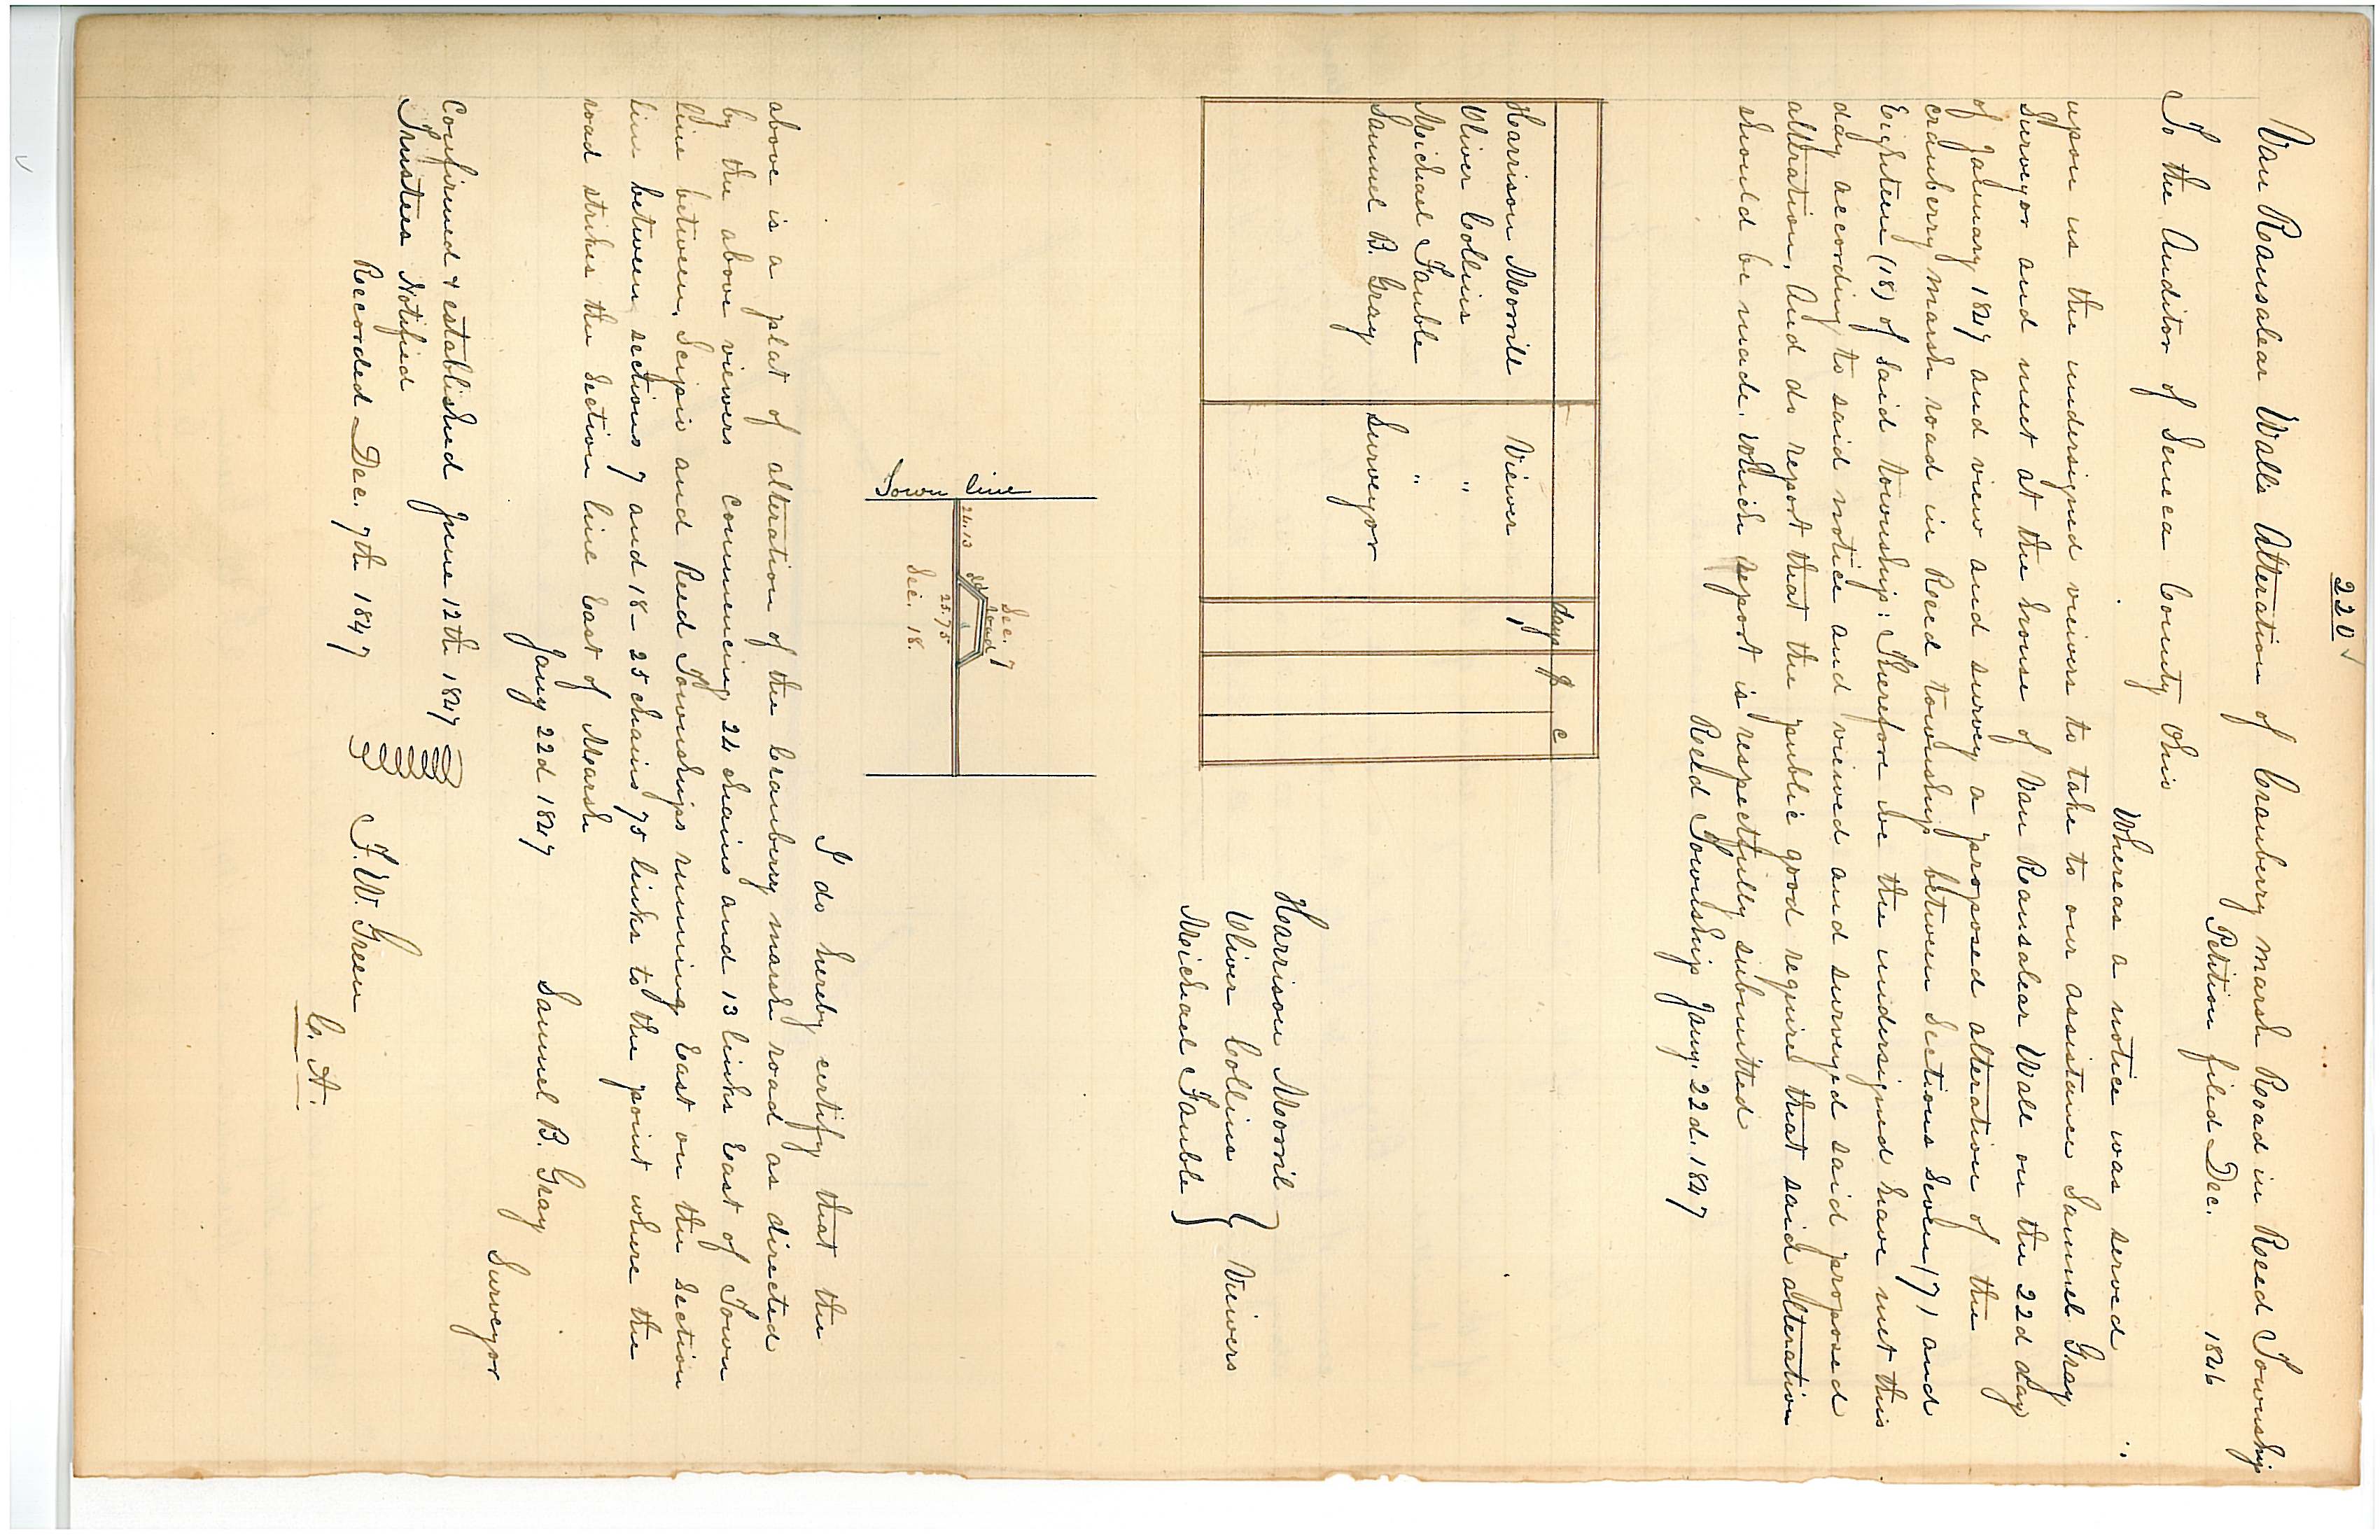 220
Van Ransalear Walls Alteration of Cranberry marsh Road in Reed Township
Petition filed Dec. 1846
To the Auditor of Seneca County Ohio
Whereas a notice was served
upon us the undersigned viewers to take to our assistance Samuel Gray
Surveyor and meet at the house of Van Ransalear Wall on the 22d day
of January 1847 and view and survey a proposed alteration of the
cranberry marsh road in Reed township between Sections Seven (7) and
Eighteen (18) of said township: Therefore we the undersigned have met this
day according to said notice and viewed and surveyed said proposed
alteration, And do report that the public good require that said alteration
should be made. Which report is respectfully submitted
Reed Township Jany. 22d. 1847
days $ c
Harrison Morril Viewer 1
Oliver Collins "
Micheal Fauble "
Samuel B. Gray Surveyor
Harrison Morril
Oliver Collins } Viewers
Micheal Fauble
Town line
24.13
old road
Sec. 7
25.75
Sec. 18.
I do hereby certify that the
above is a plat of alteration of the Cranberry marsh road as directed
by the above viewers commencing 24 chains and 13 links East of Town
line between Scipio and Reed Townships running East on the Section
line between sections 7 and 18 - 25 chains 75 links to the point where the
road strikes the Section line East of Marsh
Jany 22d 1847 Samuel B. Gray
Surveyor
Confirmed & established June 12th 1847
Trustees Notified
Recorded Dec. 7th 1847 F. W. Green
C. A.